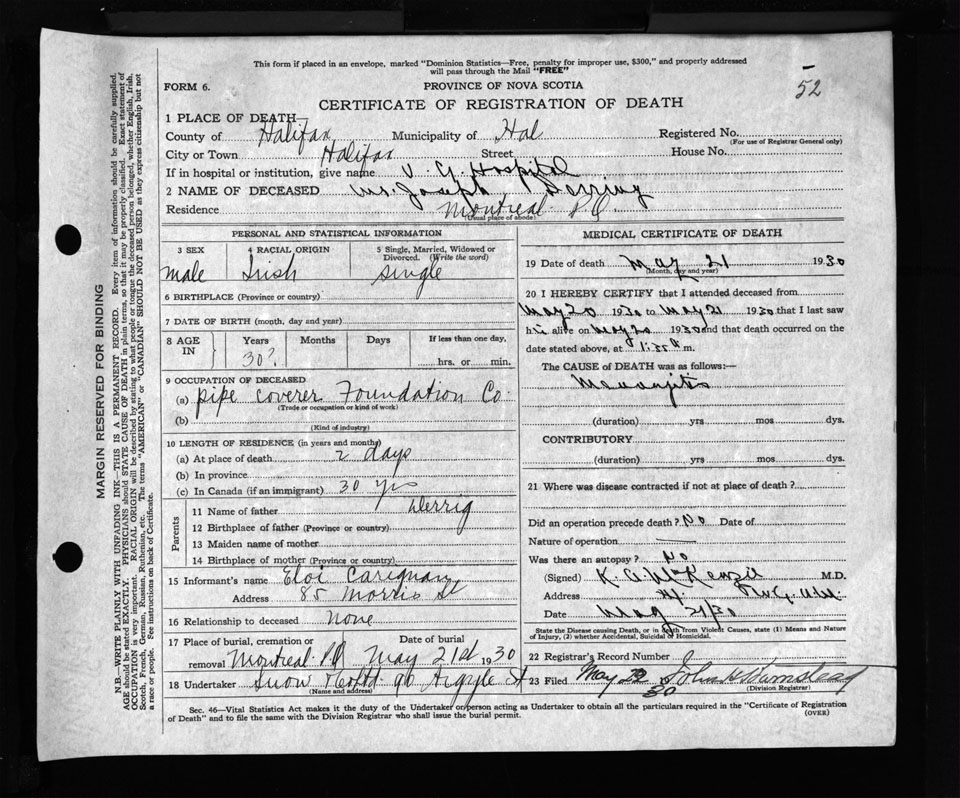 This form if placed in an envelope, marked "Dominion Statistics—Free, penalty for improper use, $300," and properly addressed
will pass through the Mail "FREE"
52
FORM 6.
PROVINCE OF NOVA SCOTIA
CERTIFICATE OF REGISTRATION OF DEATH
1 PLACE OF DEATH
County of Halifax Municipality of Hal Registered No.
(For use of Registrar General only)
City or Town Halifax Street House No.
If in hospital or institution, give name V. G. Hospital
2 NAME OF DECEASED Mr. Joseph Derring
Residence Montreal P.Q
(Usual place of abode)
PERSONAL AND STATISTICAL INFORMATION
3 SEX 4 RACIAL ORIGIN 5 Single, Married, Widowed or
Divorced. (Write the word)
male Irish single
6 BIRTHPLACE (Province or country)
7 DATE OF BIRTH (month, day and year)
8 AGE IN Years Months Days If less than one day,
30? hrs. or min.
9 OCCUPATION OF DECEASED
(a) pipe coverer Foundation Co.
(Trade or occupation or kind of work)
(b)
(Kind of industry)
10 LENGTH OF RESIDENCE (in years and months)
(a) At place of death 2 days
(b) In province
(c) In Canada (if an immigrant) 30 yrs
Parents
11 Name of father Derrig
12 Birthplace of father (Province or country)
13 Maiden name of mother
14 Birthplace of mother (Province or country)
15 Informant's name Eloi Carignan
Address 85 Morris St
16 Relationship to deceased None
17 Place of burial, cremation or Date of burial
removal Montreal P.Q May 21st 1930
18 Undertaker Snow & Co Ltd 90 Argyle St
(Name and address)
MEDICAL CERTIFICATE OF DEATH
19 Date of death May 21 1930
(Month, day and year)
20 I HEREBY CERTIFY that I attended deceased from
May 20 1930 to May 21 1930 that I last saw
him alive on May 20 1930 and that death occurred on
the date stated above, at 1:55 a m.
The CAUSE of DEATH was as follows:—
Meningitis
(duration) yrs mos dys.
CONTRIBUTORY
(duration) yrs mos dys.
21 Where was disease contracted if not at place of death?
Did an operation precede death? No Date of
Nature of operation
Was there an autopsy? No
(Signed) K. A. McKenzie M.D.
Address
Date May 21/30
State the Disease causing Death, or in death from Violent Causes, state (1) Means and Nature
of Injury, (2) whether Accidental, Suicidal or Homicidal.
22 Registrar's Record Number
23 Filed May 22 30
(Division Registrar)
Sec. 46—Vital Statistics Act makes it the duty of the Undertaker or person acting as Undertaker to obtain all the particulars required in the "Certificate of Registration
of Death" and to file the same with the Division Registrar who shall issue the burial permit.
(OVER)
MARGIN RESERVED FOR BINDING
N.B.—WRITE PLAINLY WITH UNFADING INK—THIS IS A PERMANENT RECORD. Every item of information should be carefully supplied.
AGE should be stated EXACTLY. PHYSICIANS should STATE CAUSE OF DEATH in plain terms, so that it may be properly classified. Exact statement of
OCCUPATION is very important. RACIAL ORIGIN will be described by stating to what people or tongue the deceased person belonged, whether English, Irish,
Scotch, French, German, Russian, Ruthenian, etc. The terms "AMERICAN" or "CANADIAN" SHOULD NOT BE USED as they express citizenship but not
a race or people. See instructions on back of Certificate.